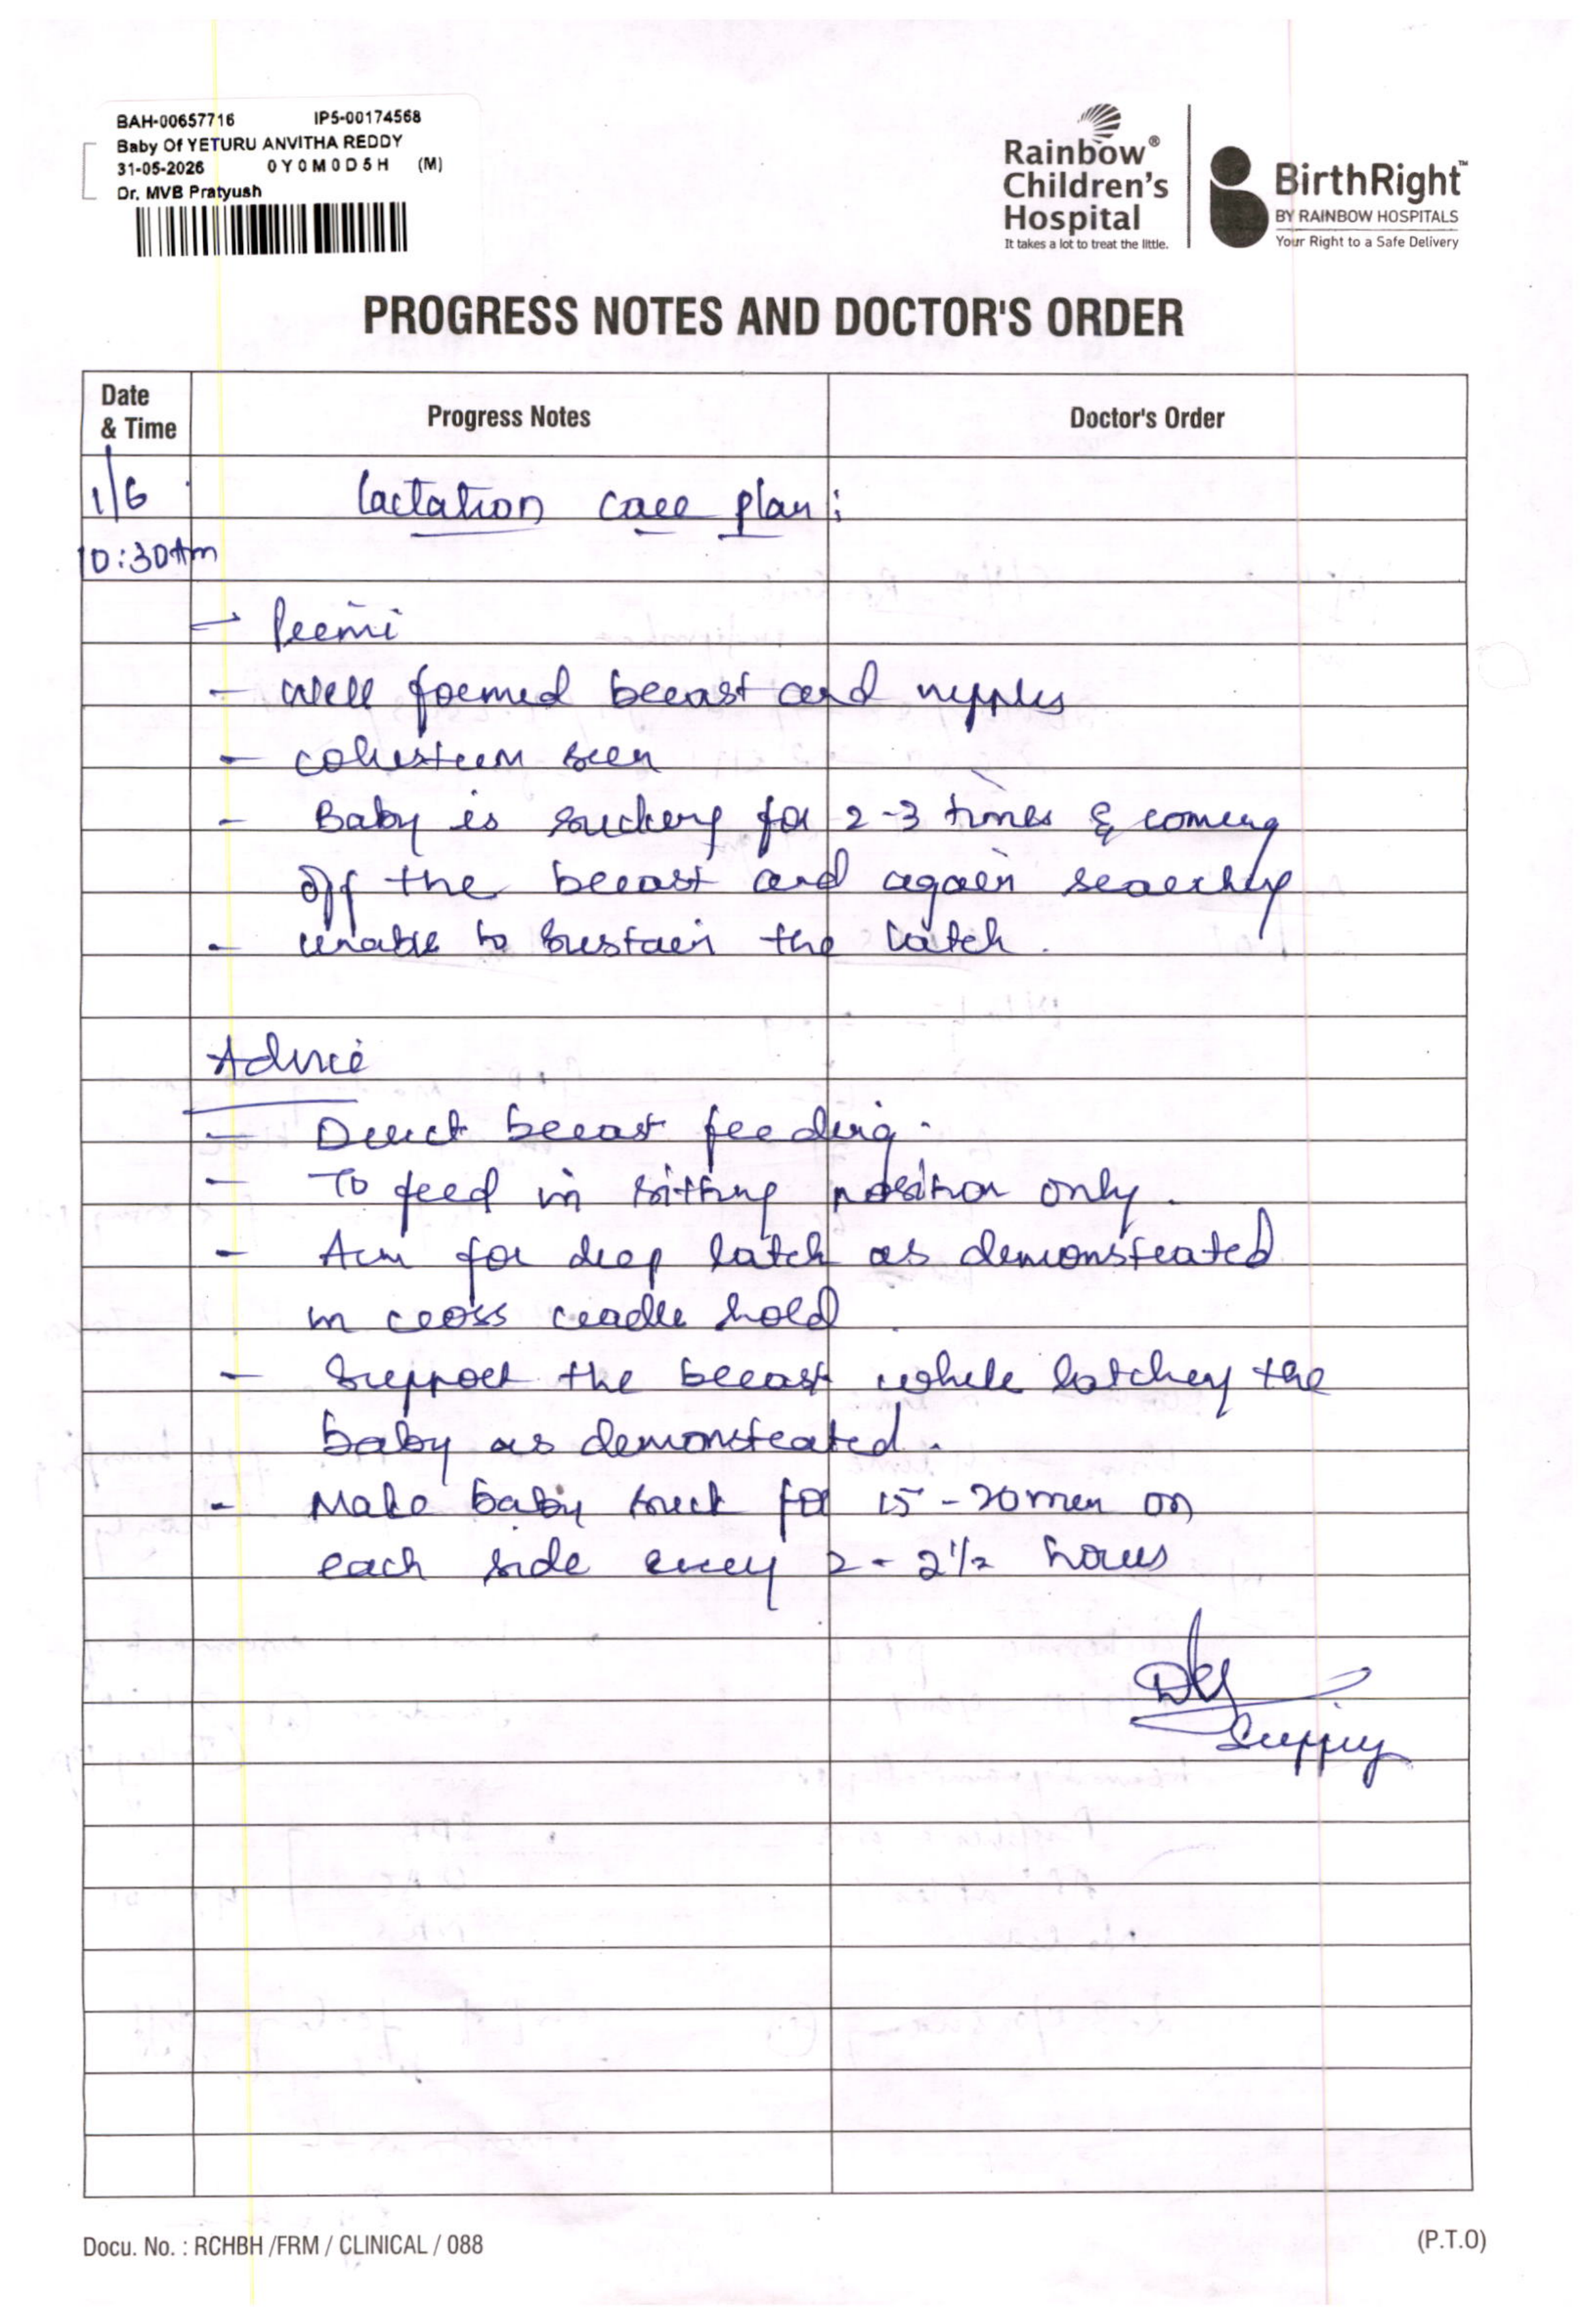 BAH-00657716 IP5-00174568
Baby Of YETURU ANVITHA REDDY
31-05-2026 0Y0M0D5H (M)
Dr. MVB Pratyush
Rainbow®
Children's
Hospital
It takes a lot to treat the little.
BirthRight™
BY RAINBOW HOSPITALS
Your Right to a Safe Delivery
PROGRESS NOTES AND DOCTOR'S ORDER
Date & Time Progress Notes Doctor's Order
1/6 Lactation care plan:
10:30 Am
- Primi
- Well formed breast and nipples
- colustrum seen
- Baby is sucking for 2-3 times & coming
off the breast and again searching
- unable to sustain the latch.
Advice
- Direct breast feeding.
- To feed in sitting position only.
- Aim for deep latch as demonstrated
in cross cradle hold
- Support the breast while latching the
baby as demonstrated.
- Make baby suck for 15-20 min on
each side every 2-2 1/2 hours
Docu. No. : RCHBH /FRM / CLINICAL / 088 (P.T.O)